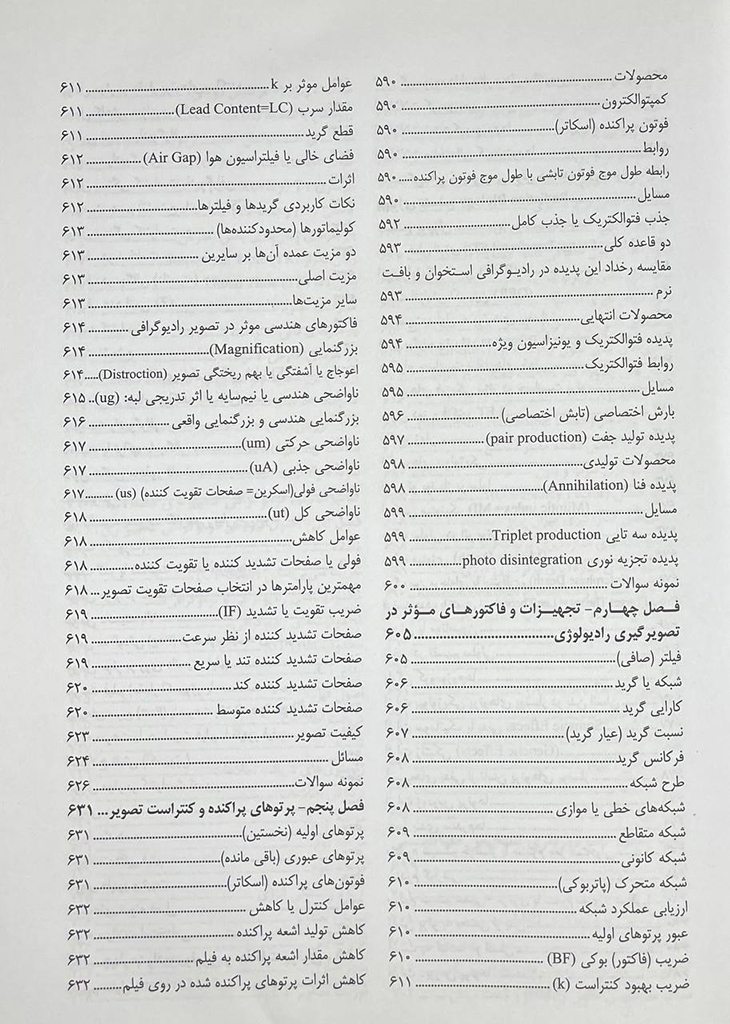 محصولات ........ ۵۹۰
کمپتوالکترون ........ ۵۹۰
فوتون پراکنده (اسکاتر) ........ ۵۹۰
روابط ........ ۵۹۰
رابطه طول موج فوتون تابشی با طول موج فوتون پراکنده ........ ۵۹۰
مسایل ........ ۵۹۰
جذب فتوالکتریک یا جذب کامل ........ ۵۹۲
دو قاعده کلی ........ ۵۹۳
مقایسه رخداد این پدیده در رادیوگرافی استخوان و بافت
نرم ........ ۵۹۳
محصولات انتهایی ........ ۵۹۴
پدیده فتوالکتریک و یونیزاسیون ویژه ........ ۵۹۴
روابط فتوالکتریک ........ ۵۹۵
مسایل ........ ۵۹۵
بارش اختصاصی (تابش اختصاصی) ........ ۵۹۶
پدیده تولید جفت (pair production) ........ ۵۹۷
محصولات تولیدی ........ ۵۹۸
پدیده فنا (Annihilation) ........ ۵۹۸
مسایل ........ ۵۹۹
پدیده سه تایی Triplet production ........ ۵۹۹
پدیده تجزیه نوری photo disintegration ........ ۵۹۹
نمونه سوالات ........ ۶۰۰
فصل چهارم- تجهیزات و فاکتورهای مؤثر در
تصویرگیری رادیولوژی ........ ۶۰۵
فیلتر (صافی) ........ ۶۰۵
شبکه یا گرید ........ ۶۰۶
کارایی گرید ........ ۶۰۶
نسبت گرید (عیار گرید) ........ ۶۰۷
فرکانس گرید ........ ۶۰۸
طرح شبکه ........ ۶۰۸
شبکه‌های خطی یا موازی ........ ۶۰۸
شبکه متقاطع ........ ۶۰۹
شبکه کانونی ........ ۶۰۹
شبکه متحرک (پاتربوکی) ........ ۶۱۰
ارزیابی عملکرد شبکه ........ ۶۱۰
عبور پرتوهای اولیه ........ ۶۱۰
ضریب (فاکتور) بوکی (BF) ........ ۶۱۰
ضریب بهبود کنتراست (k) ........ ۶۱۱
عوامل موثر بر k ........ ۶۱۱
مقدار سرب (Lead Content=LC) ........ ۶۱۱
قطع گرید ........ ۶۱۱
فضای خالی یا فیلتراسیون هوا (Air Gap) ........ ۶۱۲
اثرات ........ ۶۱۲
نکات کاربردی گریدها و فیلترها ........ ۶۱۲
کولیماتورها (محدودکننده‌ها) ........ ۶۱۳
دو مزیت عمده آن‌ها بر سایرین ........ ۶۱۳
مزیت اصلی ........ ۶۱۳
سایر مزیت‌ها ........ ۶۱۳
فاکتورهای هندسی موثر در تصویر رادیوگرافی ........ ۶۱۴
بزرگنمایی (Magnification) ........ ۶۱۴
اعوجاج یا آشفتگی یا بهم ریختگی تصویر (Distroction) ........ ۶۱۴
ناواضحی هندسی یا نیم‌سایه یا اثر تدریجی لبه: (ug) .. ۶۱۵
بزرگنمایی هندسی و بزرگنمایی واقعی ........ ۶۱۶
ناواضحی حرکتی (um) ........ ۶۱۷
ناواضحی جذبی (uA) ........ ۶۱۷
ناواضحی فولی(اسکرین= صفحات تقویت کننده) (us) ........ ۶۱۷
ناواضحی کل (ut) ........ ۶۱۸
عوامل کاهش ........ ۶۱۸
فولی یا صفحات تشدید کننده یا تقویت کننده ........ ۶۱۸
مهمترین پارامترها در انتخاب صفحات تقویت تصویر ... ۶۱۸
ضریب تقویت یا تشدید (IF) ........ ۶۱۹
صفحات تشدید کننده از نظر سرعت ........ ۶۱۹
صفحات تشدید کننده تند یا سریع ........ ۶۱۹
صفحات تشدید کننده کند ........ ۶۲۰
صفحات تشدید کننده متوسط ........ ۶۲۰
کیفیت تصویر ........ ۶۲۳
مسائل ........ ۶۲۴
نمونه سوالات ........ ۶۲۶
فصل پنجم- پرتوهای پراکنده و کنتراست تصویر ... ۶۳۱
پرتوهای اولیه (نخستین) ........ ۶۳۱
پرتوهای عبوری (باقی مانده) ........ ۶۳۱
فوتون‌های پراکنده (اسکاتر) ........ ۶۳۱
عوامل کنترل یا کاهش ........ ۶۳۲
کاهش تولید اشعه پراکنده ........ ۶۳۲
کاهش مقدار اشعه پراکنده به فیلم ........ ۶۳۲
کاهش اثرات پرتوهای پراکنده شده در روی فیلم ........ ۶۳۲